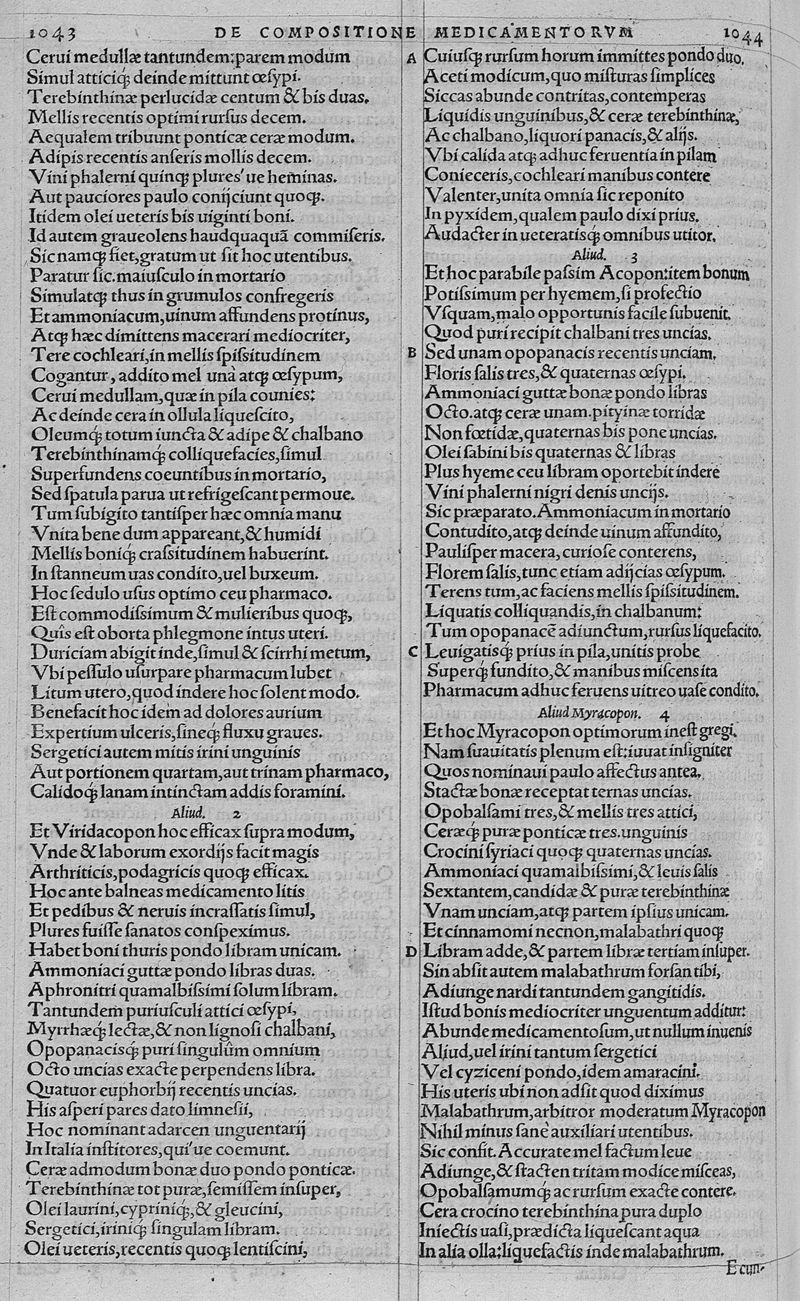 1043 DE COMPOSITIONE MEDICAMENTORVM 1044
Cerui medullæ tantundem: parem modum
Simul atticiqꝫ deinde mittunt œsypi.
Terebinthinæ perlucidæ centum & bis duas.
Mellis recentis optimi rursus decem.
Aequalem tribuunt ponticæ ceræ modum.
Adipis recentis anseris mollis decem.
Vini phalerni quinqꝫ plures'ue heminas.
Aut pauciores paulo conijciunt quoqꝫ.
Itidem olei ueteris bis uiginti boni.
Id autem graueolens haudquaquã commiseris.
Sic namqꝫ fiet, gratum ut sit hoc utentibus.
Paratur sic. maiusculo in mortario
Simulatqꝫ thus in grumulos confregeris
Et ammoniacum, uinum affundens protinus,
Atqꝫ hæc dimittens macerari mediocriter,
Tere cochleari, in mellis spissitudinem
Cogantur, addito mel unà atqꝫ œsypum,
Cerui medullam, quæ in pila counies:
Ac deinde cera in ollula liquescito,
Oleumqꝫ totum iuncta & adipe & chalbano
Terebinthinamqꝫ colliquefacies, simul
Superfundens coeuntibus in mortario,
Sed spatula parua ut refrigescant permoue.
Tum subigito tantisper hæc omnia manu
Vnita bene dum appareant, & humidi
Mellis boniqꝫ crassitudinem habuerint.
In stanneum uas condito, uel buxeum.
Hoc sedulo usus optimo ceu pharmaco.
Est commodissimum & mulieribus quoqꝫ,
Quis est oborta phlegmone intus uteri.
Duriciam abigit inde, simul & scirrhi metum,
Vbi pessulo usurpare pharmacum lubet
Litum utero, quod indere hoc solent modo.
Benefacit hoc idem ad dolores aurium
Expertium ulceris, sineqꝫ fluxu graues.
Sergetici autem mitis irini unguinis
Aut portionem quartam, aut trinam pharmaco,
Calidoqꝫ lanam intinctam addis foramini.
Aliud. 2
Et Viridacopon hoc efficax supra modum,
Vnde & laborum exordijs facit magis
Arthriticis, podagricis quoqꝫ efficax.
Hoc ante balneas medicamento litis
Et pedibus & neruis incrassatis simul,
Plures fuisse sanatos conspeximus.
Habet boni thuris pondo libram unicam.
Ammoniaci guttæ pondo libras duas.
Aphronitri quamalbissimi solum libram.
Tantundem puriusculi attici œsypi,
Myrrhæqꝫ lectæ, & non lignosi chalbani,
Opopanacisqꝫ puri singulûm omnium
Octo uncias exacte perpendens libra.
Quatuor euphorbij recentis uncias.
His asperi pares dato limnesii,
Hoc nominant adarcen unguentarij
In Italia institores, qui'ue coemunt.
Ceræ admodum bonæ duo pondo ponticæ.
Terebinthinæ tot puræ, semissem insuper,
Olei laurini, cypriniqꝫ, & gleucini,
Sergetici, iriniqꝫ singulam libram.
Olei ueteris, recentis quoqꝫ lentiscini,
A Cuiusqꝫ rursum horum immittes pondo duo.
Aceti modicum, quo misturas simplices
Siccas abunde contritas, contemperas
Liquidis unguinibus, & ceræ terebinthinæ,
Ac chalbano, liquori panacis, & alijs.
Vbi calida atqꝫ adhuc feruentia in pilam
Conieceris, cochleari manibus contere
Valenter, unita omnia sic reponito
In pyxidem, qualem paulo dixi prius.
Audacter in ueteratisqꝫ omnibus utitor.
Aliud. 3
Et hoc parabile passim Acopon: item bonum
Potissimum per hyemem, si profectio
Vsquam, malo opportunis facile subuenit.
Quod puri recipit chalbani tres uncias.
B Sed unam opopanacis recentis unciam.
Floris salis tres, & quaternas œsypi.
Ammoniaci guttæ bonæ pondo libras
Octo. atqꝫ ceræ unam. pityinæ torridæ
Non fœtidæ, quaternas bis pone uncias.
Olei sabini bis quaternas & libras
Plus hyeme ceu libram oportebit indere
Vini phalerni nigri denis uncijs.
Sic præparato. Ammoniacum in mortario
Contudito, atqꝫ deinde uinum affundito,
Paulisper macera, curiose conterens,
Florem salis, tunc etiam adijcias œsypum.
Terens tum, ac faciens mellis spissitudinem.
Liquatis colliquandis, in chalbanum:
Tum opopanacẽ adiunctum, rursus liquefacito.
C Leuigatisqꝫ prius in pila, unitis probe
Superqꝫ fundito, & manibus miscens ita
Pharmacum adhuc feruens uitreo uase condito.
Aliud Myracopon. 4
Et hoc Myracopon optimorum inest gregi.
Nam suauitatis plenum est: iuuat insigniter
Quos nominaui paulo affectus antea.
Stactæ bonæ receptat ternas uncias.
Opobalsami tres, & mellis tres attici,
Ceræqꝫ puræ ponticæ tres. unguinis
Crocini syriaci quoqꝫ quaternas uncias.
Ammoniaci quamalbissimi, & leuis salis
Sextantem, candidæ & puræ terebinthinæ
Vnam unciam, atqꝫ partem ipsius unicam.
Et cinnamomi necnon, malabathri quoqꝫ
D Libram adde, & partem libræ tertiam insuper.
Sin absit autem malabathrum forsan tibi,
Adiunge nardi tantundem gangitidis.
Istud bonis mediocriter unguentum additur:
Abunde medicamentosum, ut nullum inuenis
Aliud, uel irini tantum sergetici
Vel cyziceni pondo, idem amaracini.
His uteris ubi non adsit quod diximus
Malabathrum, arbitror moderatum Myracopon
Nihil minus sanè auxiliari utentibus.
Sic confit. Accurate mel factum leue
Adiunge, & stacten tritam modice misceas,
Opobalsamumqꝫ ac rursum exacte contere.
Cera crocino terebinthina pura duplo
Iniectis uasi, prædicta liquescant aqua
In alia olla: liquefactis inde malabathrum.
Ecun-